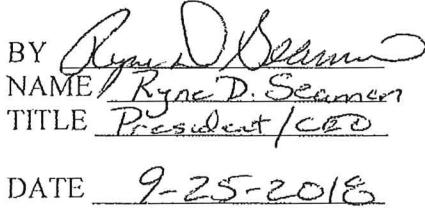 BY Ryne D Seaman
NAME Ryne D. Seaman
TITLE President/CEO
DATE 9-25-2018